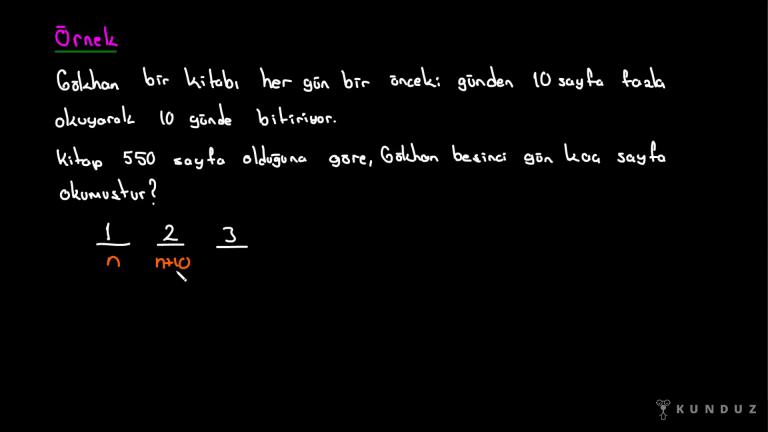 Örnek
Gökhan bir kitabı her gün bir önceki günden 10 sayfa fazla
okuyarak 10 günde bitiriyor.
Kitap 550 sayfa olduğuna göre, Gökhan beşinci gün kaç sayfa
okumuştur?
1 2 3
n n+10
KUNDUZ